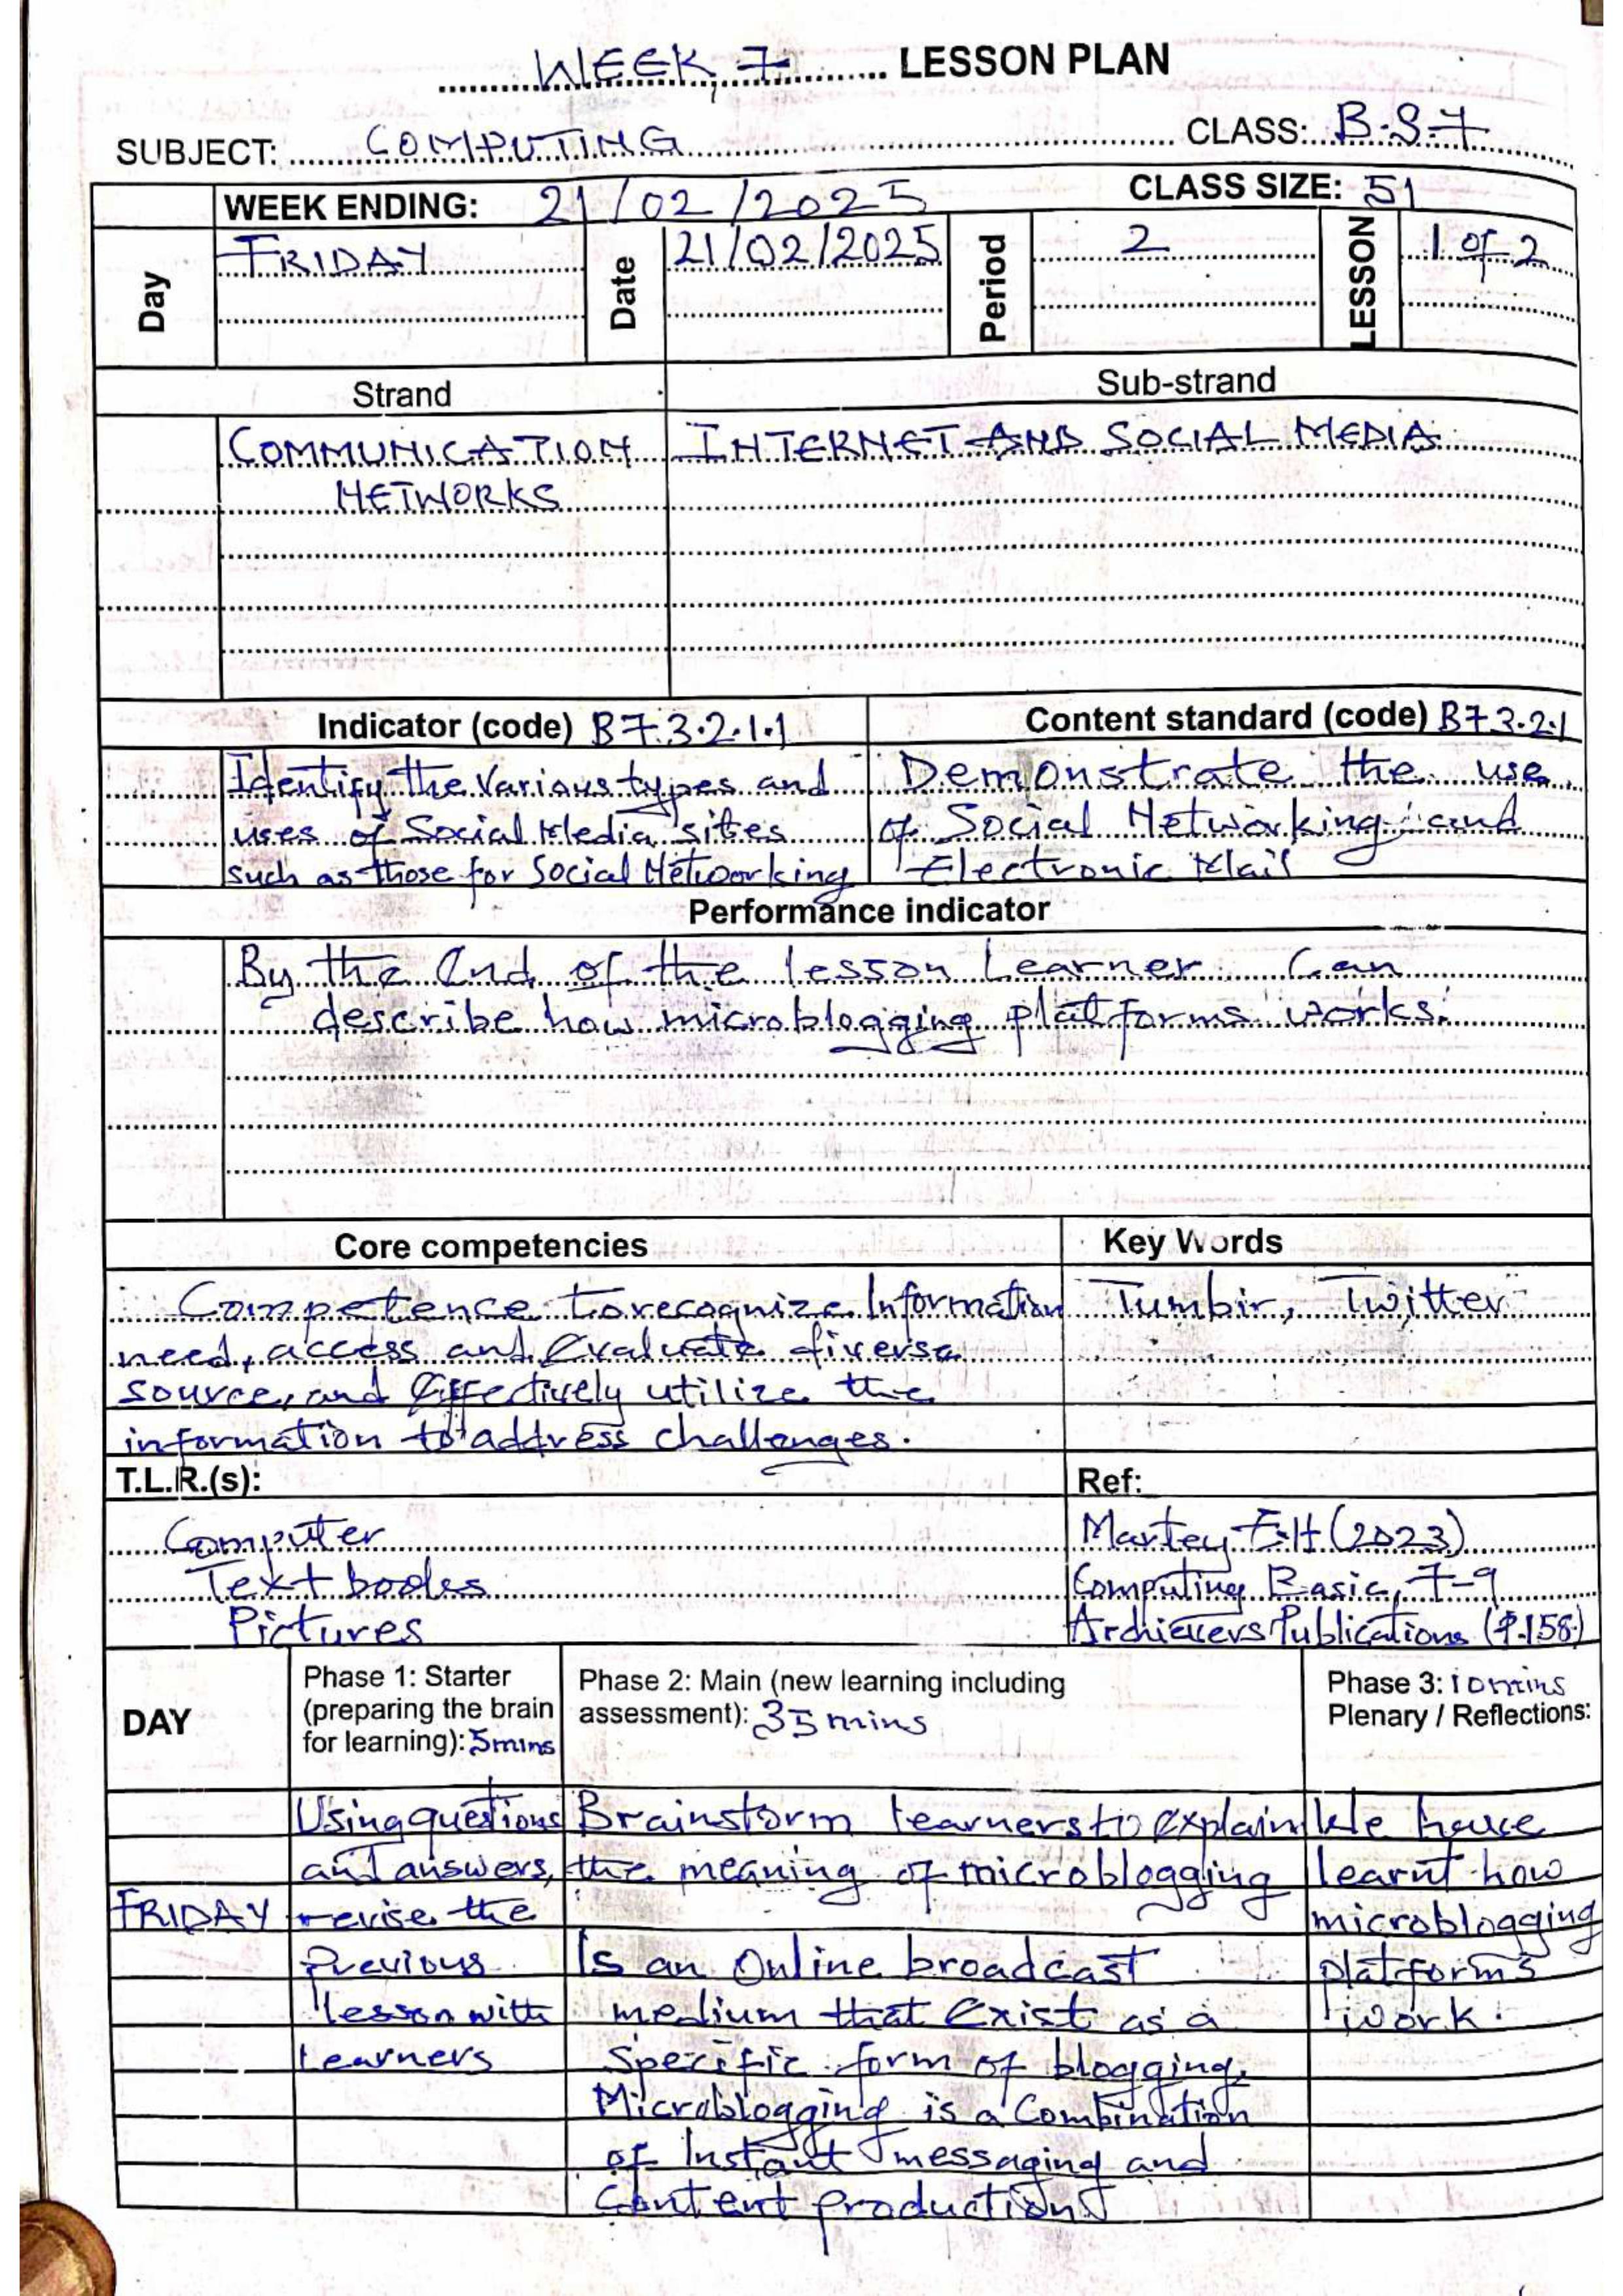 WEEK 7 LESSON PLAN
SUBJECT: COMPUTING CLASS: B.S.7
WEEK ENDING: 21/02/2025 CLASS SIZE: 51
Day FRIDAY Date 21/02/2025 Period 2 LESSON 1 of 2
Strand Sub-strand
COMMUNICATION INTERNET AND SOCIAL MEDIA
NETWORKS
Indicator (code) B7.3.2.1.1 Content standard (code) B7.3.2.1
Identify the Various types and Demonstrate the use
uses of Social Media sites of Social Networking and
such as those for Social Networking Electronic Mail
Performance indicator
By the End of the lesson Learner Can
describe how microblogging platforms works.
Core competencies Key Words
Competence to recognize Information Tumbir, Twitter
need, access and Evaluate diverse
source, and Effectively utilize the
information to address challenges.
T.L.R.(s): Ref:
Computer Martey E.H (2023)
Text books Computing Basic, 7-9
Pictures Archievers Publications (P.158)
DAY
Phase 1: Starter
(preparing the brain
for learning): 5mins
Phase 2: Main (new learning including
assessment): 35 mins
Phase 3: 10mins
Plenary / Reflections:
FRIDAY
Using questions
and answers,
revise the
Previous
lesson with
Learners
Brainstorm learners to Explain
the meaning of microblogging
Is an Online broadcast
medium that Exist as a
Specific form of blogging.
Microblogging is a Combination
of Instant messaging and
Content production
We have
learnt how
microblogging
platforms
work.